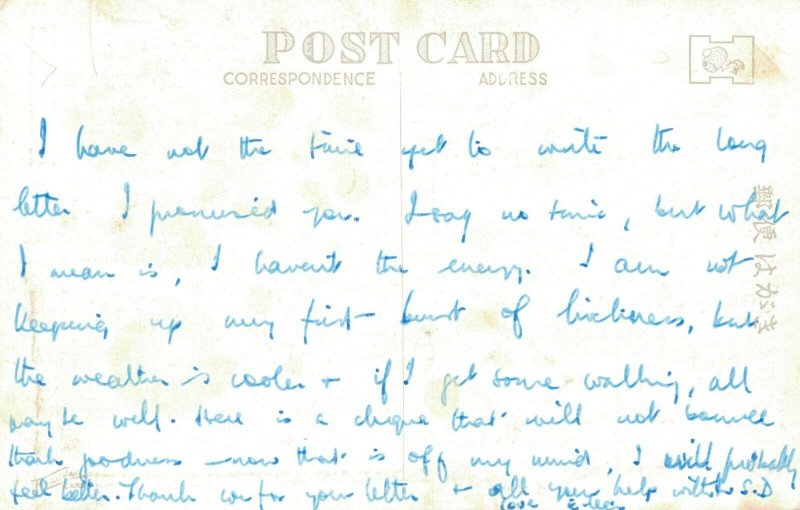 POST CARD
CORRESPONDENCE ADDRESS
郵便はがき
I have not the time yet to write the long
letter I promised you. I say no time, but what
I mean is, I haven't the energy. I am not
keeping up my first burst of, but
the weather is cooler + if I get some walking, all
may be well. There is a cheque that will not bounce
thank goodness – now that is off my mind, I will probably
feel better. Thank for your letter + all your help with S.D
love